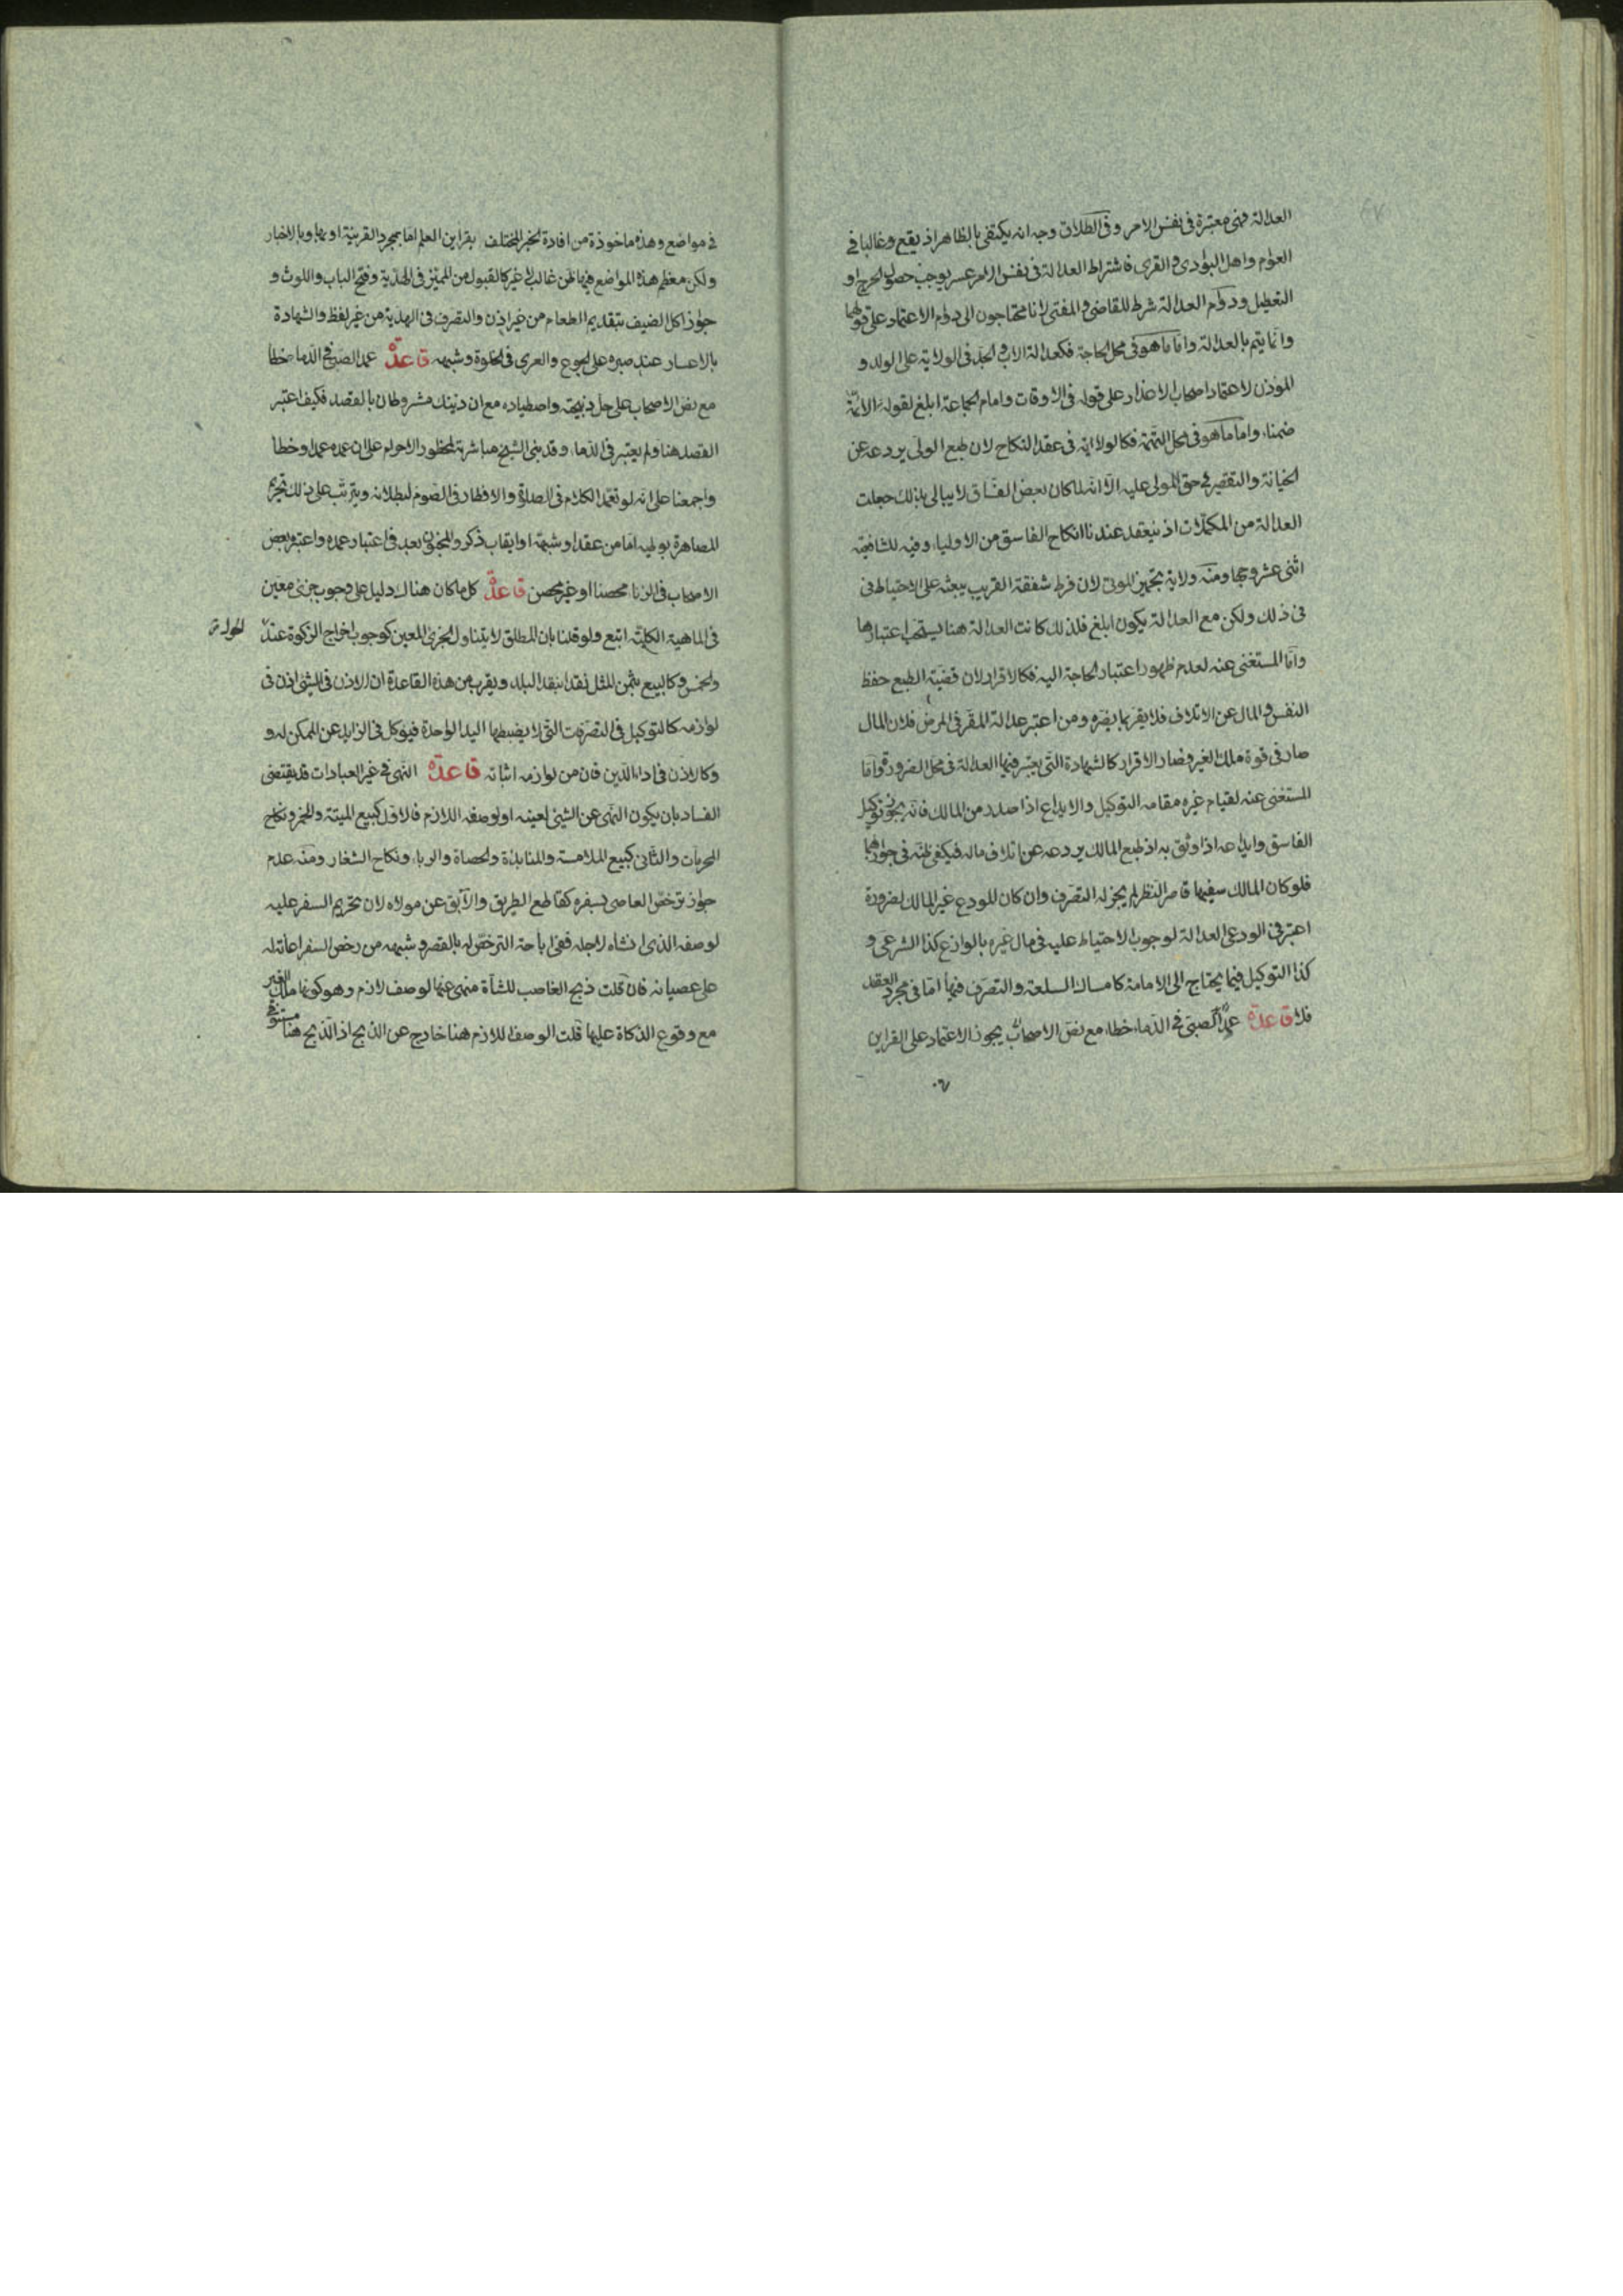 العدالة فهي معتبرة في نفس الامر وفي الطلاق وجه انه يكتفي بالظاهر اذ يقع وغالبا في
العوام واهل البوادي والقرى فاشتراط العدالة في نفس الامر عسر يوجب حصول الحرج او
التعطيل ودوام العدالة شرط للقاضي والمفتي لانا محتاجون الى دوام الاعتماد على قولهما
وانما يتم بالعدالة واما ما هو في محل الحاجة فكعدالة الاب والجد في الولاية على الولد و
المؤذن لاعتماد اصحاب الاعذار على قوله في الاوقات وامام الجماعة ابلغ لقوله الائمة
ضمناء واما ما هو في محل التتمة فكالولاية في عقد النكاح لان طبع الولي يردعه عن
الخيانة والتقصير في حق المولى عليه الا انه لما كان بعض الفساق لا يبالي بذلك جعلت
العدالة من المكملات اذ ينعقد عندنا انكاح الفاسق من الاولياء وفيه للشافعية
اثنى عشر وجها ومنه ولاية تجهيز الموتى لان فرط شفقة القريب يبعثه على الاحتياط في
في ذلك ولكن مع العدالة يكون ابلغ فلذلك كانت العدالة هنا يستحب اعتبارها
واما المستغنى عنه لعدم ظهور اعتبار الحاجة اليه فكالاقرار لان قضية الطبع حفظ
النفس والمال عن الاتلاف فلا يقر بما يضره ومن اعتبر عدالة المقر في المرض فلان المال
صار في قوة ملك الغير فصار الاقرار كالشهادة التي يعتبر فيها العدالة في محل الضرورة واما
المستغنى عنه لقيام غيره مقامه التوكيل والايداع اذا صدر من المالك فانه يجوز توكيل
الفاسق وايداعه اذا وثق به اذ طبع المالك يردعه عن اتلاف ماله فيكفي ظنه في جوازهما
فلو كان المالك سفيها قاصر النظر لم يجز له التصرف وان كان المودع غير المالك لضرورة
اعتبر في الودعي العدالة لوجوب الاحتياط عليه في مال غيره بالوازع كذا الشرعي و
كذا التوكيل فيما يحتاج الى الامانة كامساك السلعة والتصرف فيها اما في مجرد العقد
فلا قاعدة عمد الصبي في الدماء خطاء مع نص الاصحاب يجوز الاعتماد على القراين
في مواضع وهذه ماخوذة من افادة الخبر المختلف بقراين العلم اما بمجرد القرينة او بها وبالاخبار
ولكن معظم هذه المواضع فيها ظن غالب لا غير كالقبول من المميز في الهدية وفتح الباب واللوث و
جواز اكل الضيف بتقديم الطعام من غير اذن والتصرف في الهدية من غير لفظ والشهادة
بالاعسار عند صبره على الجوع والعري في الخلوة وشبهه قاعدة عمد الصبي في الدماء خطا
مع نص الاصحاب على حل ذبيحته واصطياده مع ان ذينك مشروطان بالقصد فكيف اعتبر
القصد هنا ولم يعتبر في الدماء وقد بنى الشيخ مباشرته لمحظور الاحرام على ان عمده عمد او خطا
واجمعنا على انه لو تعمد الكلام في الصلاة والافطار في الصوم لبطلانه ويترتب على ذلك تحريم
المصاهرة بوطيه اما من عقد او شبهة او ايقاب ذكر والمجنون بعد في اعتبار عمده واعتبر بعض
الاصحاب في الزنا محصنا او غير محصن قاعدة كل ما كان هناك دليل على وجوب جزئي معين
في الماهية الكلية اتبع ولو قلنا بان المطلق لا يتناول الجزئي المعين كوجوب اخراج الزكوة عند
الحول
والخمس وكالبيع بثمن المثل نقدا بنقد البلد ويقرب من هذه القاعدة ان الاذن في الشيئ اذن في
لوازمه كالتوكيل في التصرفات التي لا يضبطها اليد الواحدة فيوكل في الزايد عن الممكن له و
وكالاذن في اداء الدين فان من لوازمه اثباته قاعدة النهي في غير العبادات قد يقتضي
الفساد بان يكون النهي عن الشيئ لعينه او لوصفه اللازم فالاول كبيع الميتة والخمر ونكاح
المحرمات والثاني كبيع الملامسة والمنابذة والحصاة والربا ونكاح الشغار ومنه عدم
جواز ترخص العاصي بسفره كقاطع الطريق والآبق عن مولاه لان تحريم السفر عليه
لوصفه الذي انشاه لاجله ففي اباحة الترخص له بالقصر وشبهه من رخص السفر اعانة له
على عصيانه فان قلت ذبح الغاصب للشاة منهي عنها لوصف لازم وهو كونها ملك الغير
مع وقوع الذكاة عليها قلت الوصف اللازم هنا خارج عن الذبح اذ الذبح هنا مستوف